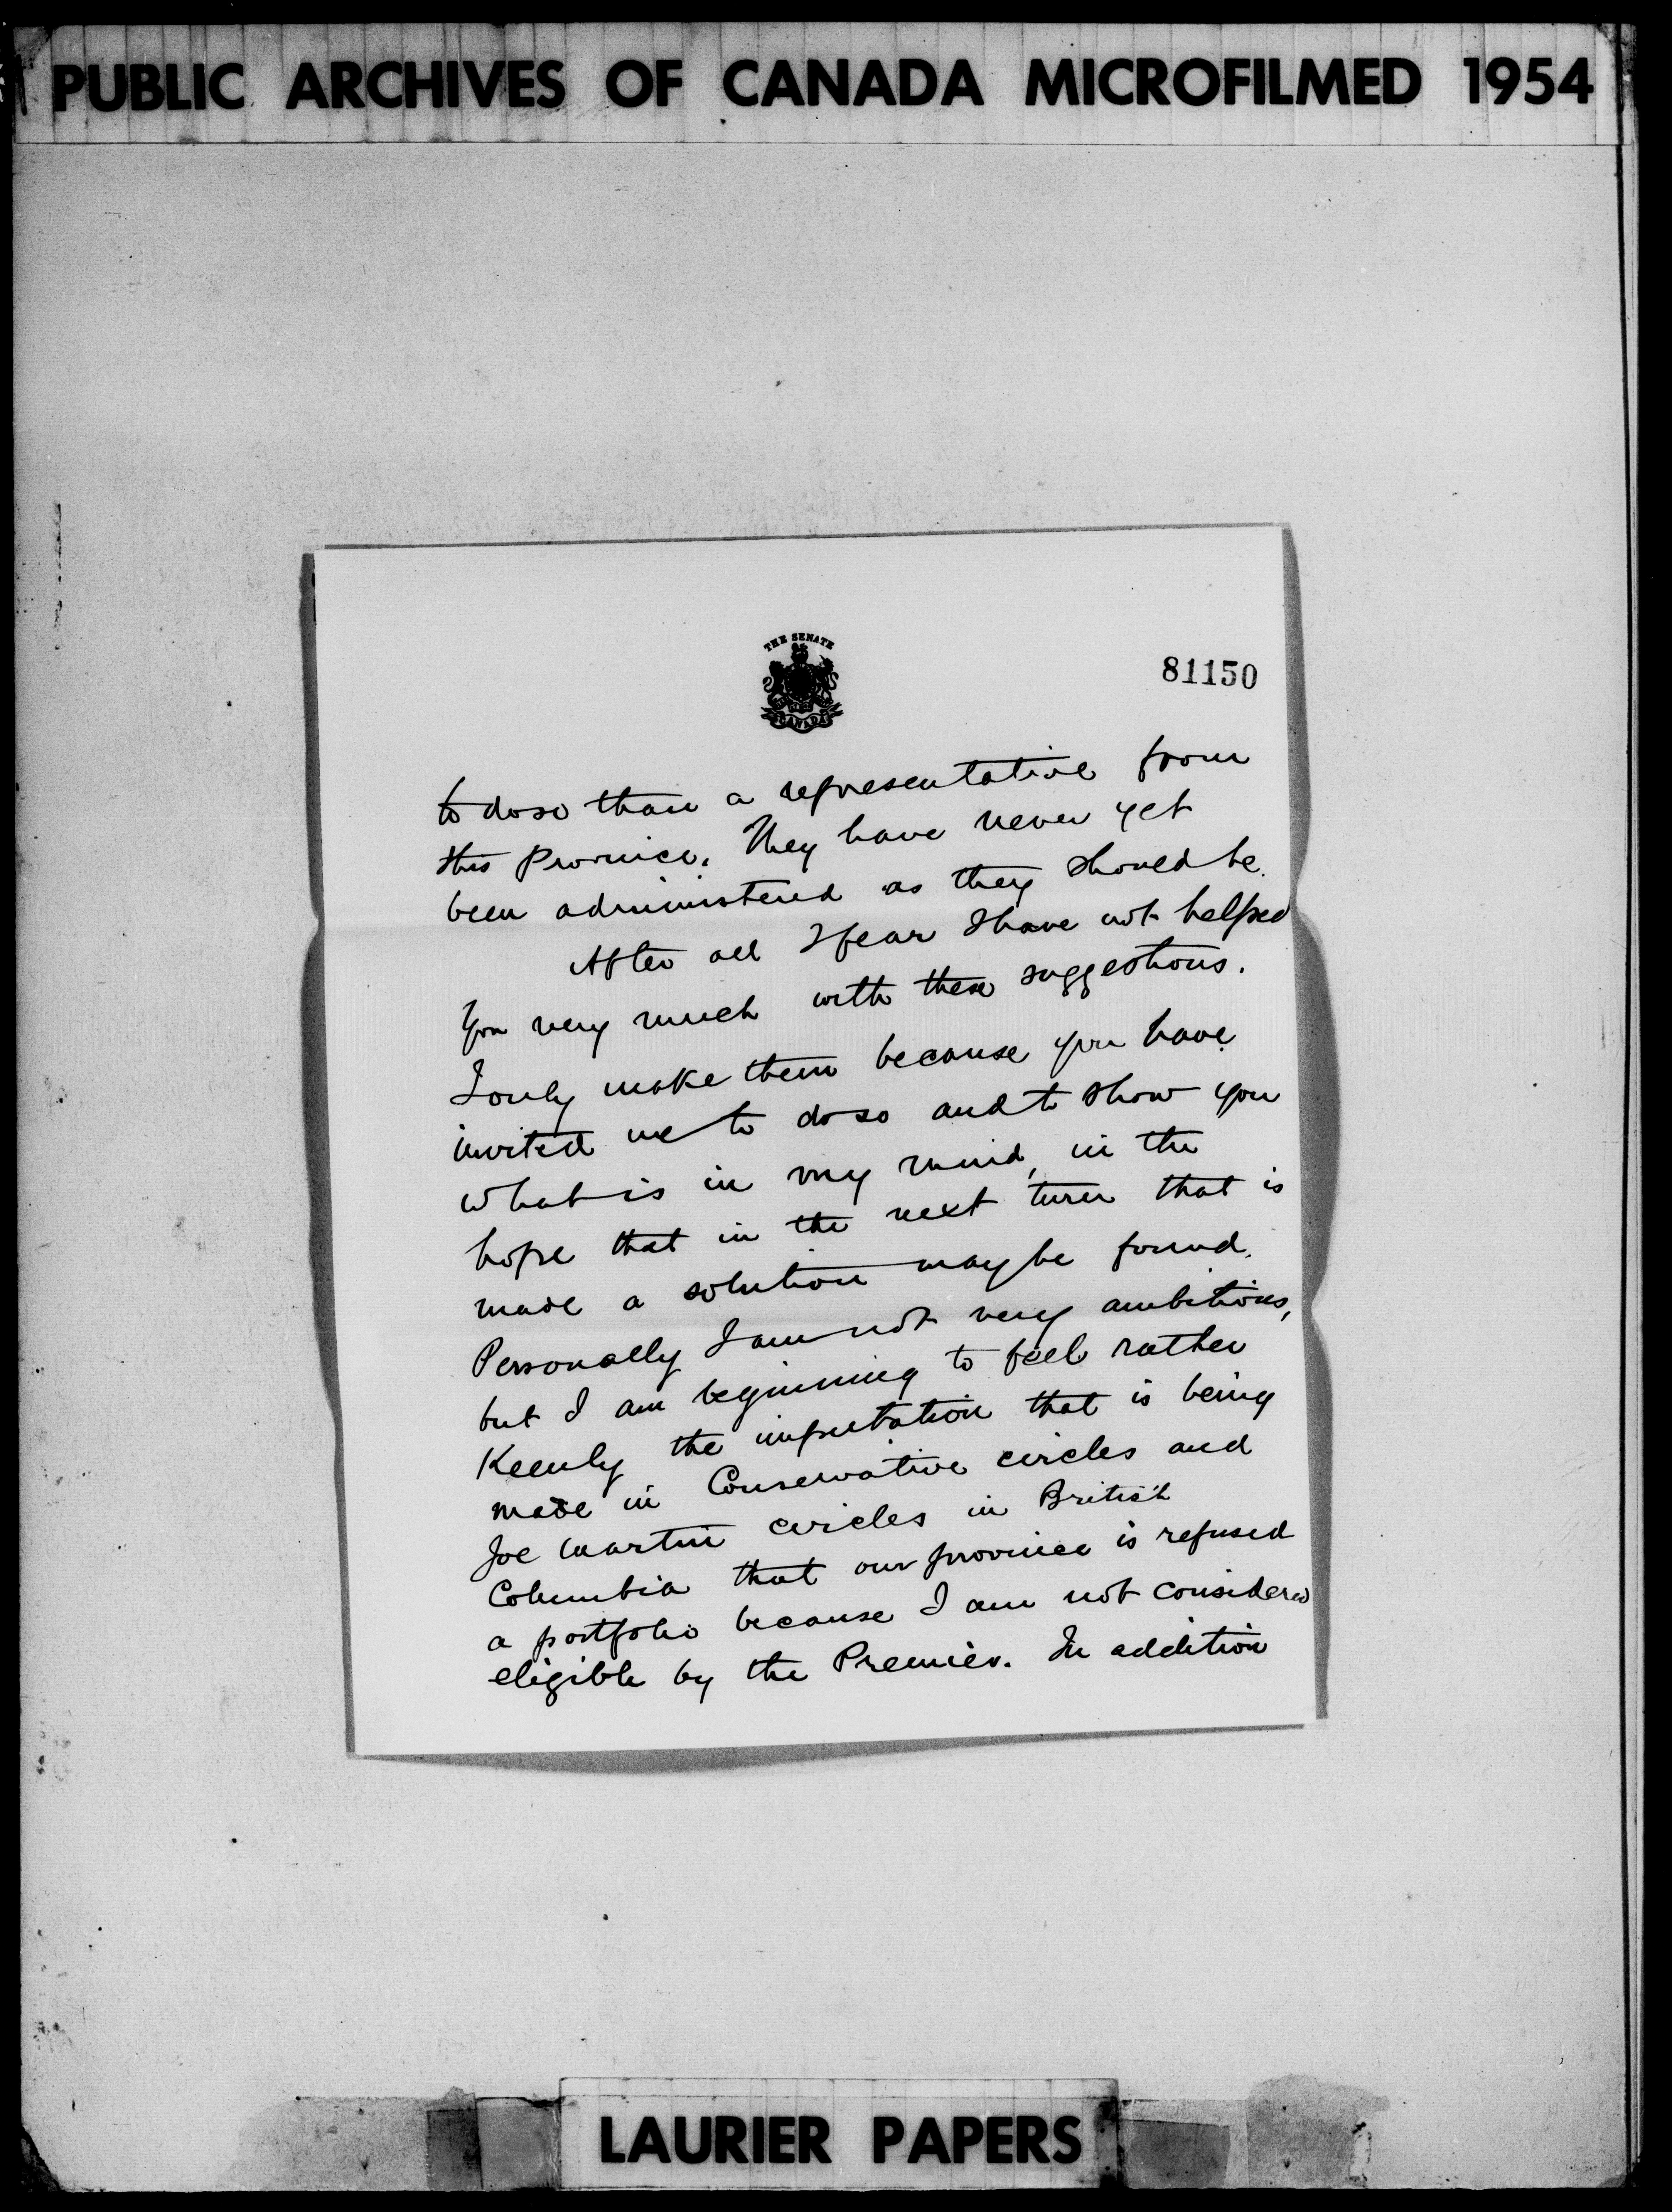 PUBLIC ARCHIVES OF CANADA MICROFILMED 1954
THE SENATE
CANADA
81150
to do so than a representative from
this Province. They have never yet
been administered as they should be.
After all I fear I have not helped
you very much with these suggestions.
I only make them because you have
invited me to do so and to show you
what is in my mind, in the
hope that in the next turn that is
made a solution may be found.
Personally I am not very ambitious,
but I am beginning to feel rather
Keenly the imputation that is being
made in Conservative circles and
Joe Martin circles in British
Columbia that our province is refused
a portfolio because I am not considered
eligible by the Premier. In addition
LAURIER PAPERS